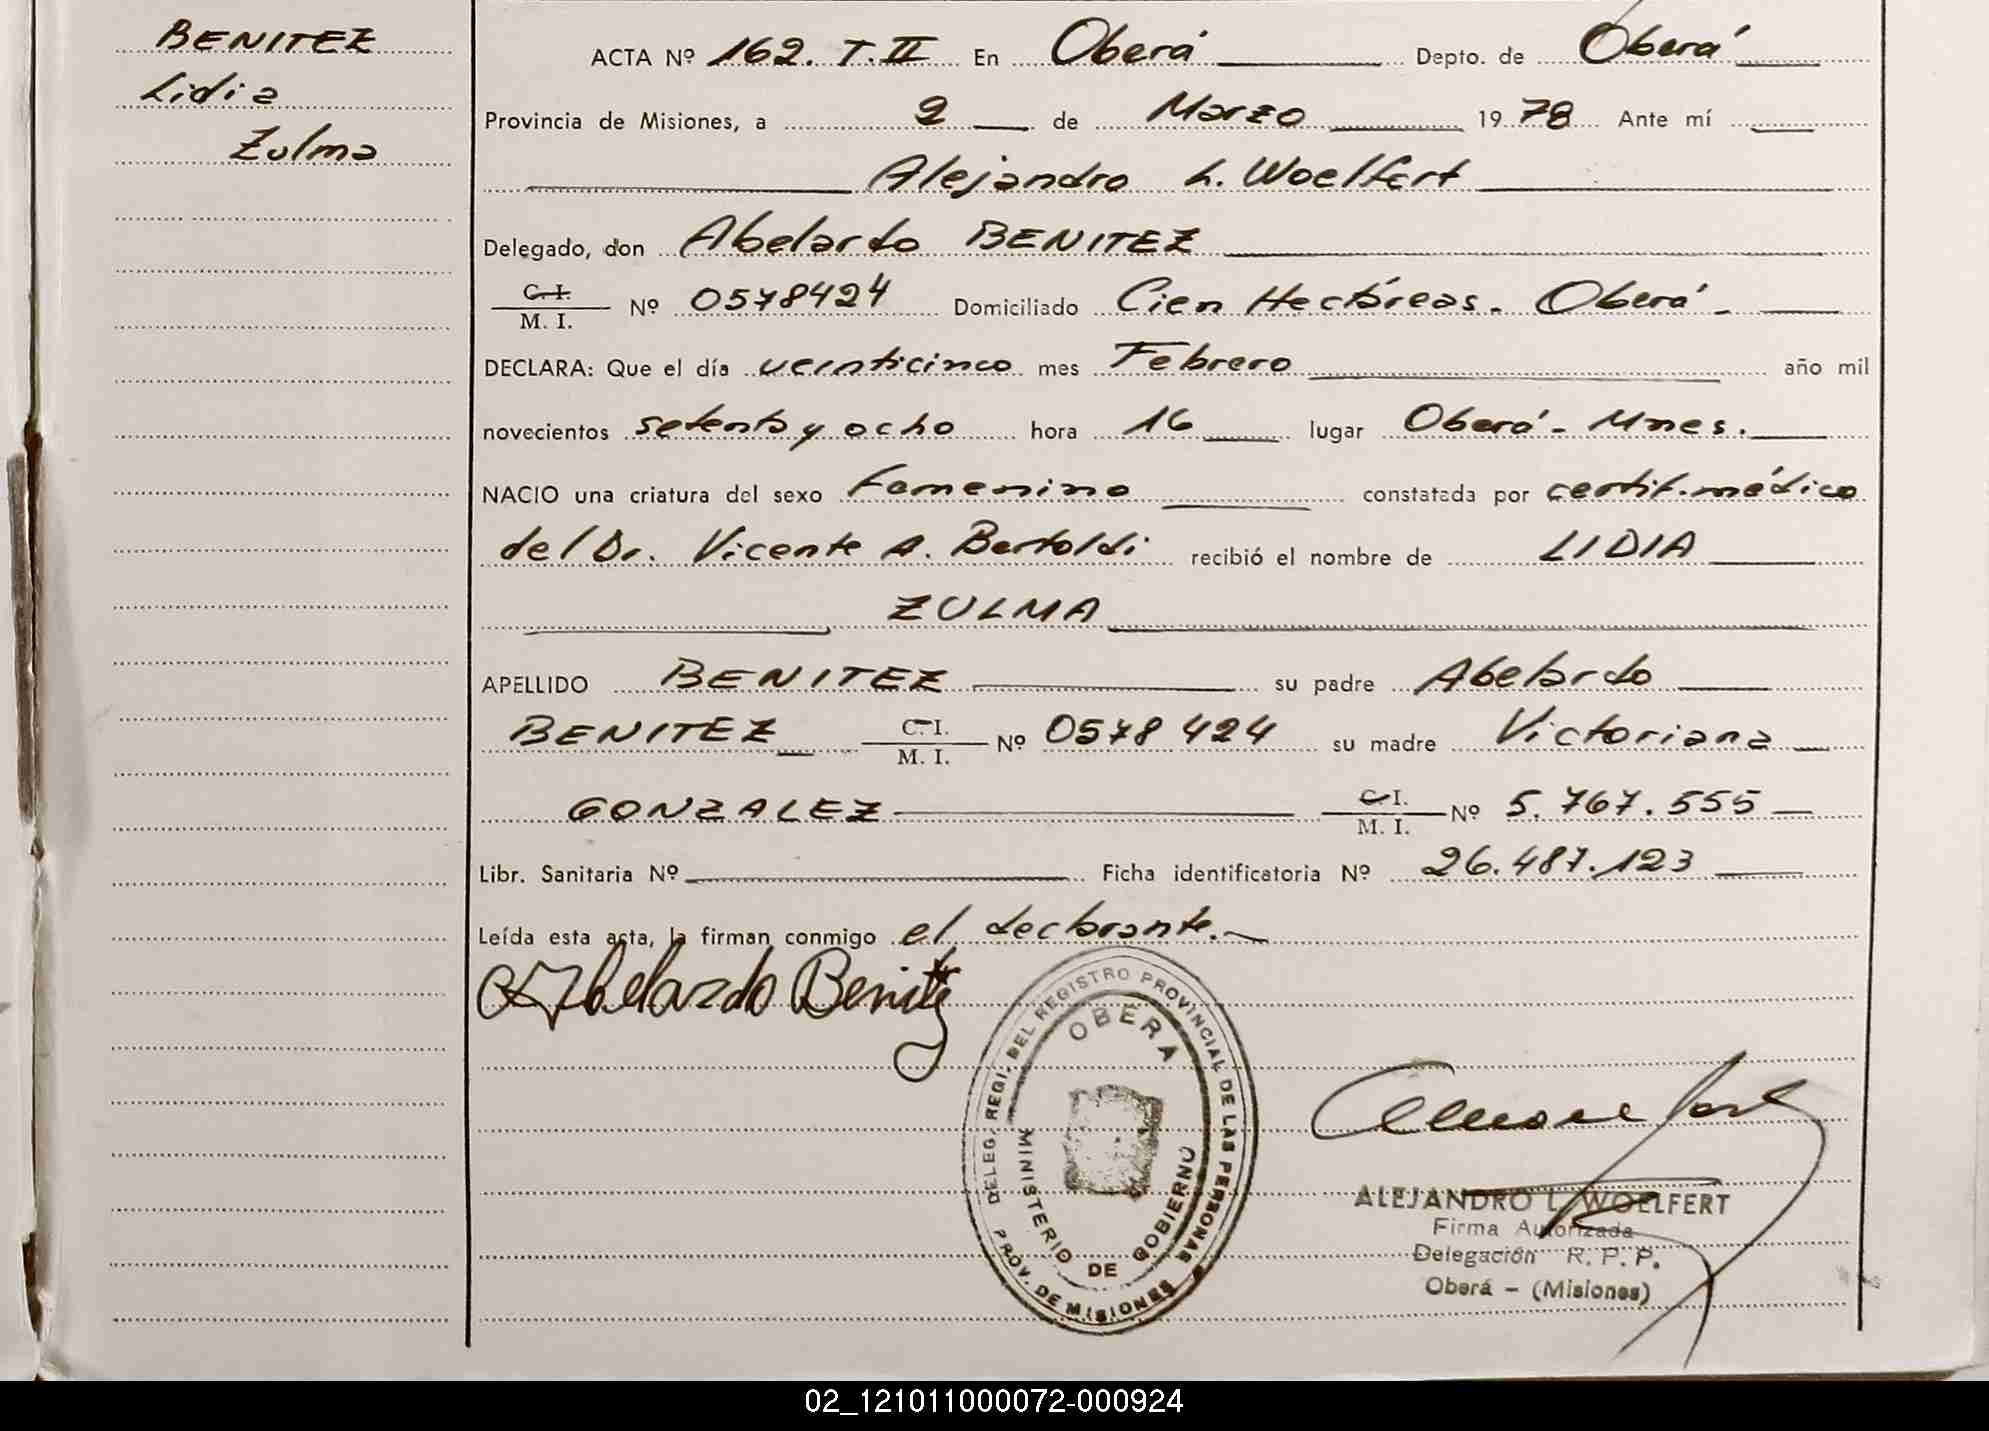 BENITEZ
Lidia
Zulma
ACTA Nº 162. T. II En Oberá Depto. de Oberá
Provincia de Misiones, a 2 de Marzo 1978 Ante mí
Alejandro L. Woelfert
Delegado, don Abelardo BENITEZ
C. I. / M. I. Nº 0578424 Domiciliado Cien Hectáreas. Oberá
DECLARA: Que el día veinticinco mes Febrero año mil
novecientos setenta y ocho hora 16 lugar Oberá - Mnes.
NACIO una criatura del sexo Femenino constatada por certif. médico
del Dr. Vicente A. Bertoldi recibió el nombre de LIDIA
ZULMA
APELLIDO BENITEZ su padre Abelardo
BENITEZ C. I. / M. I. Nº 0578424 su madre Victoriana
GONZALEZ C. I. / M. I. Nº 5.767.555
Libr. Sanitaria Nº Ficha identificatoria Nº 26.487.123
Leída esta acta, la firman conmigo el declarante.
Abelardo Benitez
DELEG. REGI. DEL REGISTRO PROVINCIAL DE LAS PERSONAS
OBERA
MINISTERIO DE GOBIERNO
PROV. DE MISIONES
ALEJANDRO L. WOELFERT
Firma Autorizada
Delegación R. P. P.
Oberá - (Misiones)
02_121011000072-000924